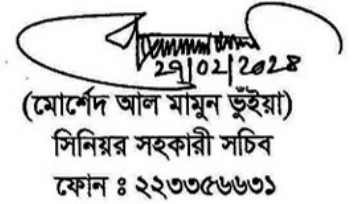 ২৭/০২/২০২৪
(মোর্শেদ আল মামুন ভুঁইয়া)
সিনিয়র সহকারী সচিব
ফোন ঃ ২২৩৩৫৬৬৩১